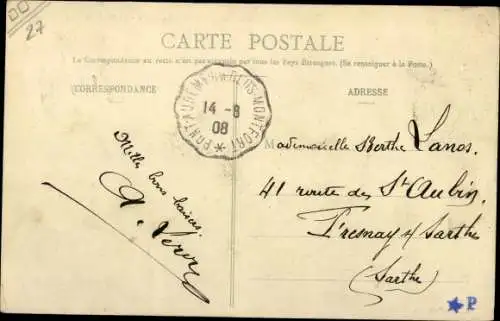 27
CARTE POSTALE
La Correspondance au recto n'est pas acceptée par tous les Pays Étrangers. (Se renseigner à la Poste.)
CORRESPONDANCE
ADRESSE
PONT-AUDEMER A GLOS-MONTFORT
14 - 8
08
Mademoiselle Berthe Lanos.
41 route de St Aubin,
Fresnay s/ Sarthe
(Sarthe)
Mille bons baisers.
A.
P